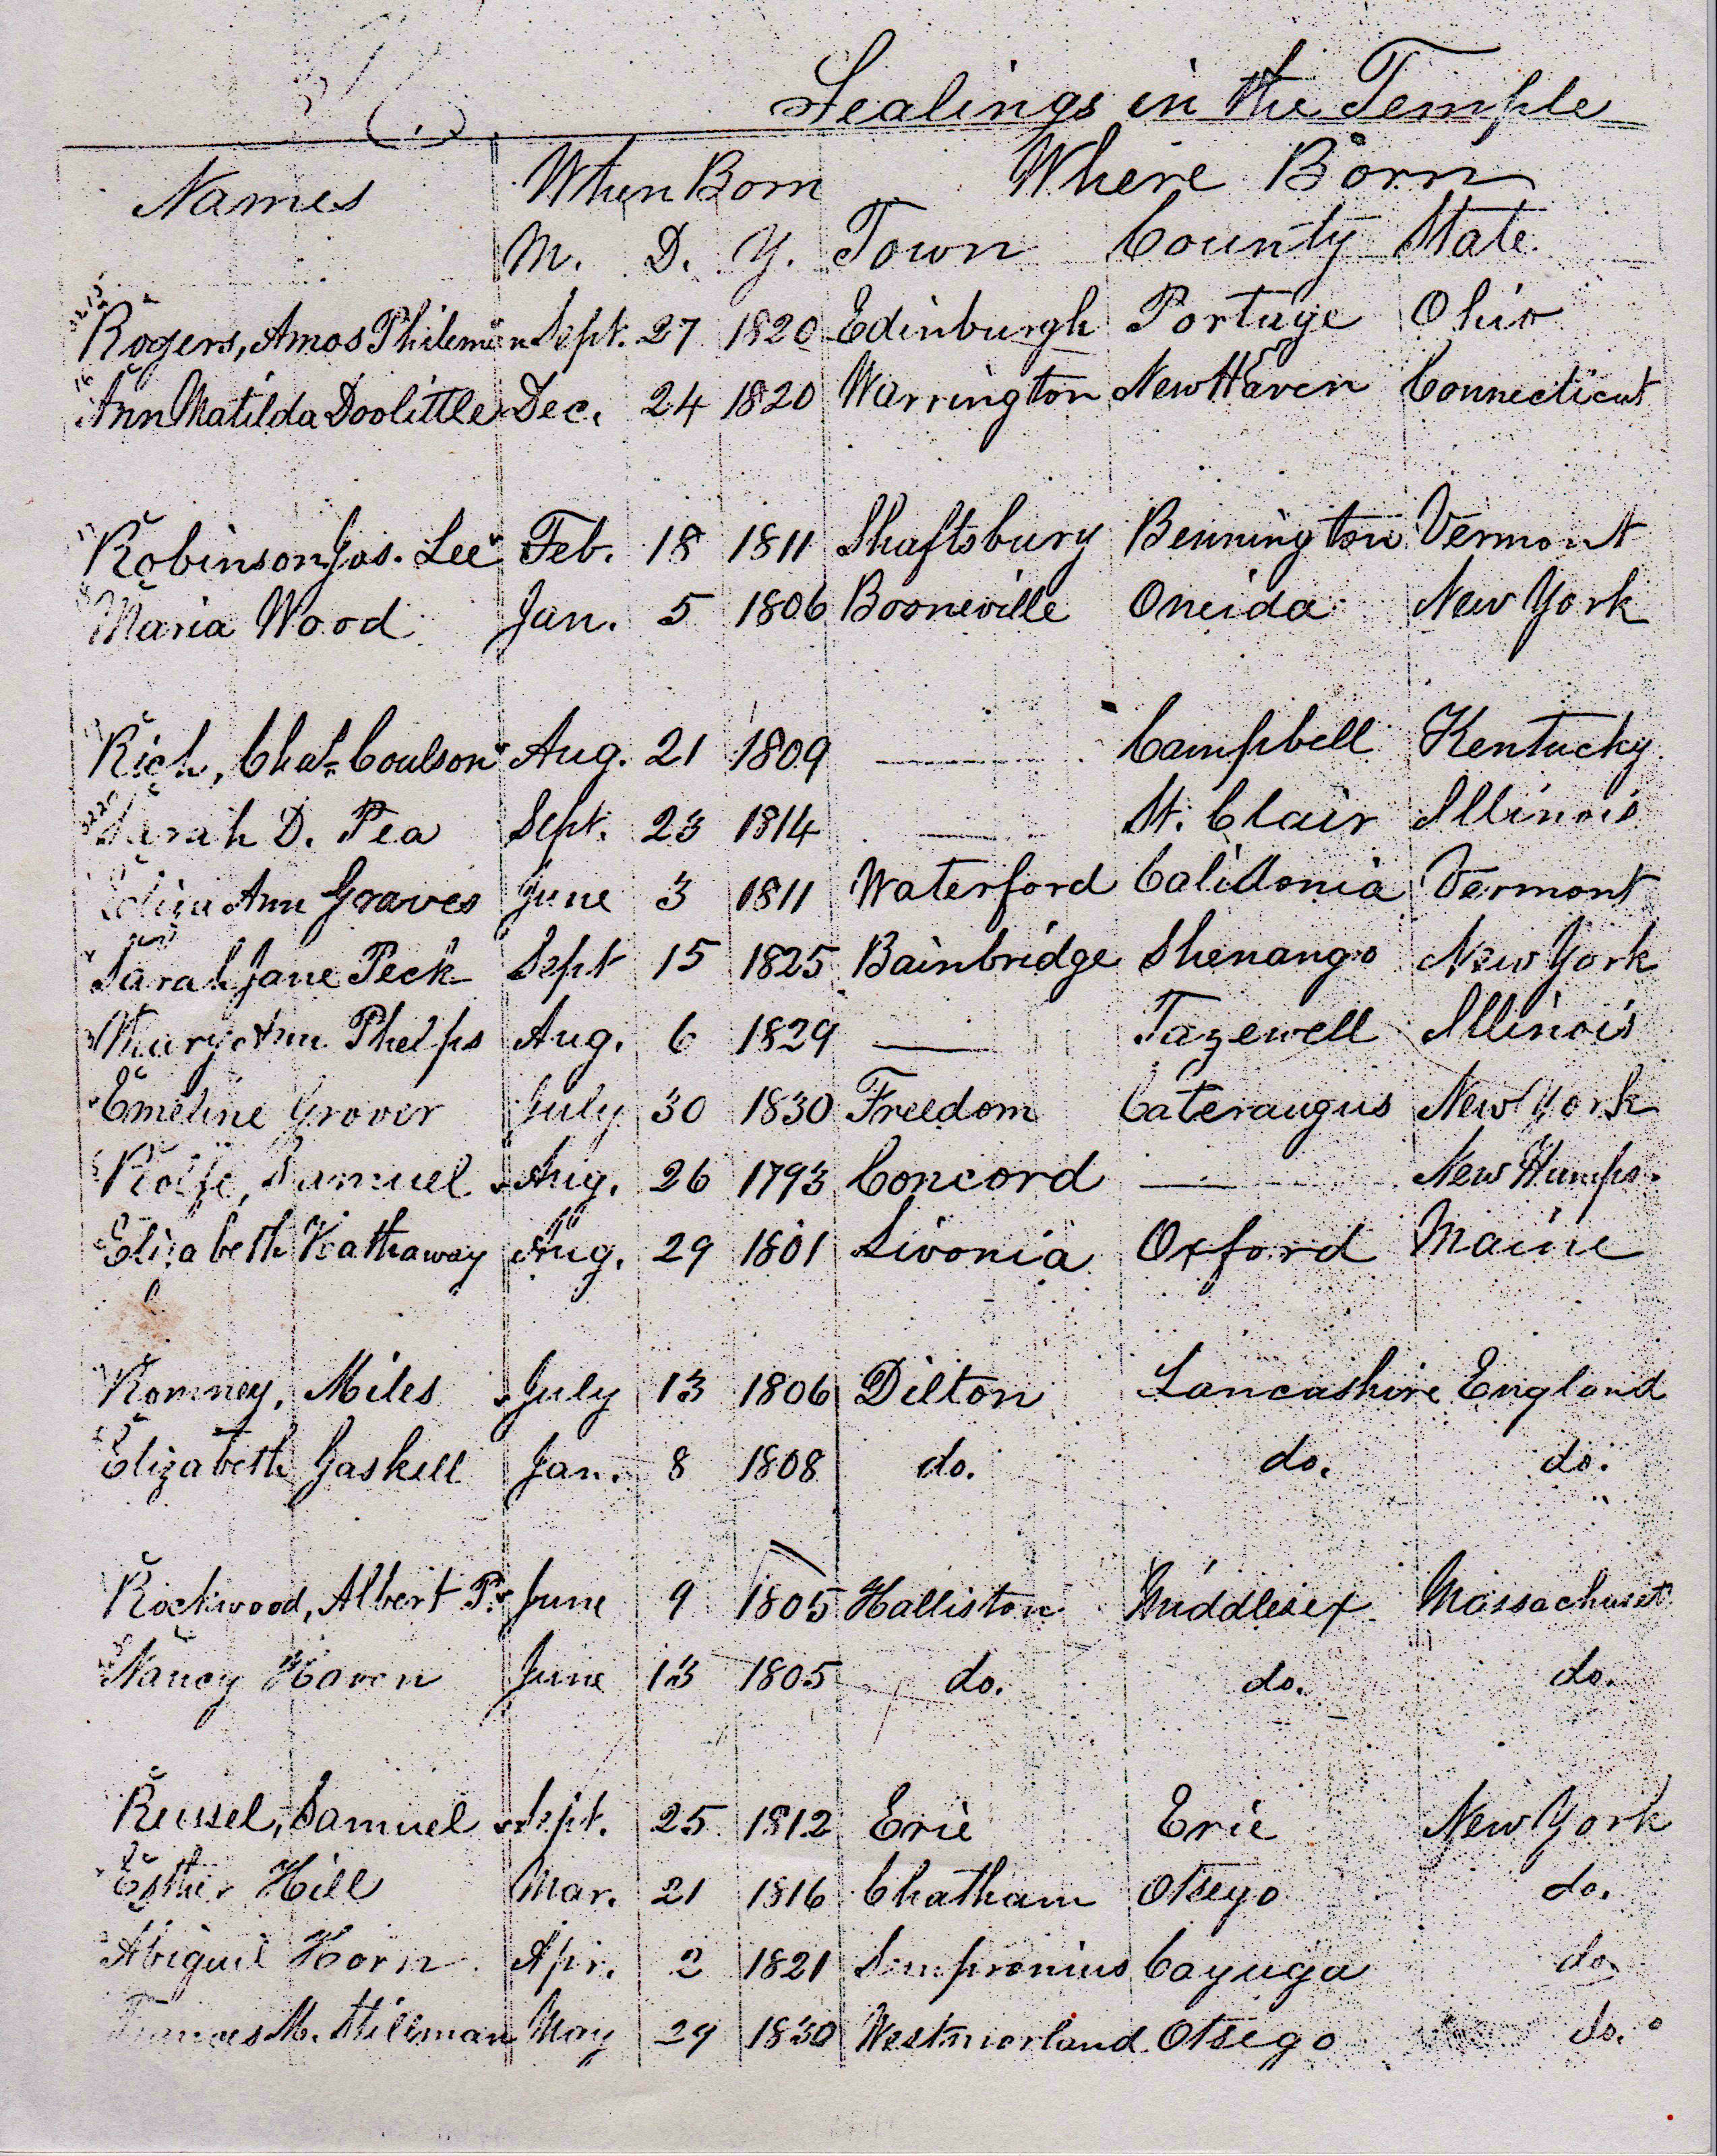 Sealings in the Temple
Names When Born Where Born
M. D. Y. Town County State
Rogers, Amos Philemon Sept. 27 1820 Edinburgh Portage Ohio
Ann Matilda Doolittle Dec. 24 1820 Warrington New Haven Connecticut
Robinson, Jos. Lee Feb. 18 1811 Shaftsbury Bennington Vermont
Maria Wood Jan. 5 1806 Booneville Oneida New York
Rich, Chas. Coulson Aug. 21 1809 — Campbell Kentucky
Sarah D. Pea Sept. 23 1814 — St. Clair Illinois
Eliza Ann Graves June 3 1811 Waterford Calidonia Vermont
Sarah Jane Peck Sept 15 1825 Bainbridge Shenango New York
Mary Ann Phelps Aug. 6 1829 — Tazewell Illinois
Emeline Grover July 30 1830 Freedom Cateraugus New York
Rolfe, Samuel Aug. 26 1793 Concord — New Hamps.
Elizabeth Hathaway Aug. 29 1801 Livonia Oxford Maine
Romney, Miles July 13 1806 Dilton Lancashire England
Elizabeth Gaskell Jan. 8 1808 do. do. do.
Rockwood, Albert P. June 9 1805 Halliston Middlesex Massachuset
Nancy Haven June 13 1805 do. do. do.
Russel, Samuel Sept. 25 1812 Erie Erie New York
Esther Hill Mar. 21 1816 Chatham Otsego do.
Abigail Horn Apr. 2 1821 Sempronius Cayuga do.
Frances M. Stillman May 29 1830 Westmorland Otsego do.